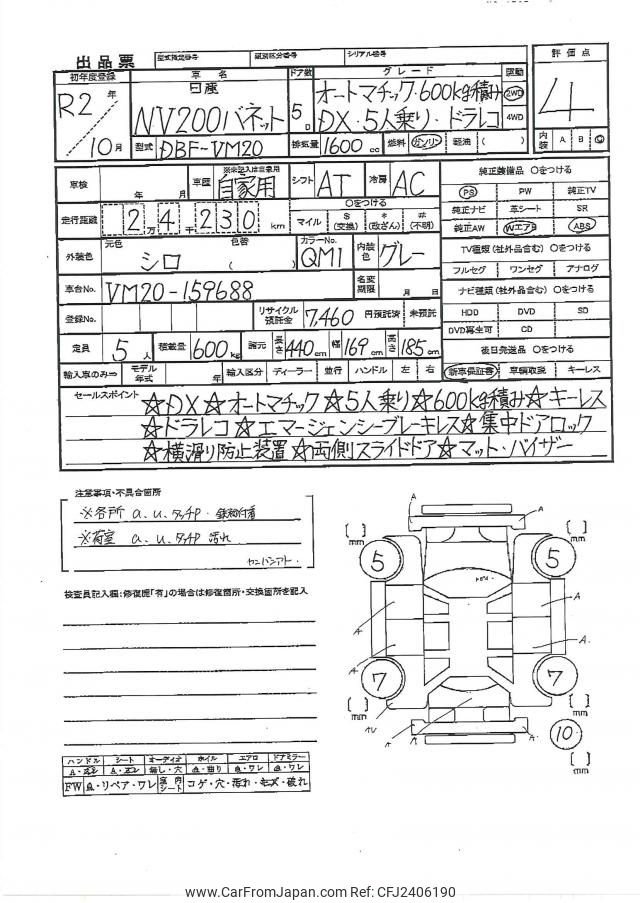 出品票 型式指定番号 類別区分番号 シリアル番号
初年度登録 車名 ドア数 グレード 駆動 評価点
R2年 日産 5D オートマチック・600kg積み 2WD 4
10月 NV200バネット DX・5人乗り・ドラレコ 4WD
型式 DBF-VM20 排気量 1600cc 燃料 ガソリン 軽油 ( ) 内装 A B C
車検 年 月 車歴 ※未記入は自家用 自家用 シフト AT 冷房 AC 純正装備品 〇をつける
PS PW 純正TV
走行距離 2万4千230km 〇をつける マイル $(交換) *(改ざん) #(不明) 純正ナビ 革シート SR
純正AW WエアB ABS
外装色 元色 シロ 色替 ( ) カラーNo. QM1 内装色 グレー TV種類(社外品含む) 〇をつける
フルセグ ワンセグ アナログ
車台No. VM20-159688 名変期限 月 日 ナビ種類(社外品含む) 〇をつける
登録No. リサイクル預託金 7,460 円預託済 未預託 HDD DVD SD
DVD再生可 CD
定員 5人 積載量 600kg 諸元 長さ 440cm 幅 169cm 高さ 185cm 後日発送品 〇をつける
輸入車のみ⇒ モデル年式 年 輸入区分 ディーラー 並行 ハンドル 左 右 新車保証書 車輌取説 キーレス
セールスポイント ☆DX☆オートマチック☆5人乗り☆600kg積み☆キーレス
☆ドラレコ☆エマージェンシーブレーキレス☆集中ドアロック
☆横滑り防止装置☆両側スライドドア☆マット・バイザー
注意事項・不具合箇所
※各所 a.u.タッチP・鉄粉付着
※荷室 a.u.タッチP 汚れ
検査員記入欄:修復歴「有」の場合は修復箇所・交換箇所を記入
A A
[ ]mm 5 5 [ ]mm
A A
A A
7 7
[ ]mm [ ]mm
A
10
[ ]mm
ハンドル シート オーディオ ホイル エアロ ドアミラー
無し・穴 曲り ワレ ワレ
FW リペア・ワレ 車内シート コゲ・穴・汚れ・キズ・破れ
www.CarFromJapan.com Ref: CFJ2406190